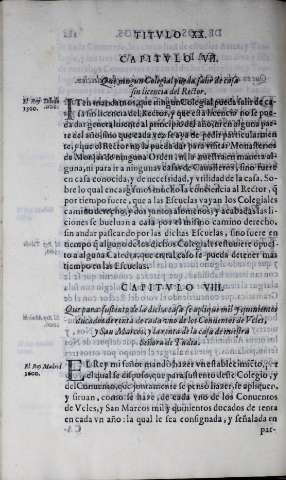 TITVLO XX.
CAPITVLO VII.
Que ningun Colegial pueda salir de casa
sin licencia del Rector.
El Rey Toledo
1560.
ITen mandamos, que ningun Colegial pueda salir de ca-
sa sin licencia del Rector, y que esta licencia no se pue-
da dar generalmente al principio del año, ni en alguna par-
te del año, sino que cada vez se aya de pedir particularmen
te, y que el Rector no la pueda dar para visitar Monasterios
de Monjas de ninguna Orden, ni la nuestra en manera al-
guna, ni para ir a ningunas casas de Caualleros, sino fuere
en casa conocida, y de necessidad, y vtilidad de la casa. So-
bre lo qual encargamos mucho la conciencia al Rector, q̃
por tiempo fuere, que a las Escuelas vayan los Colegiales
camino derecho, y dos juntos a lo menos, y acabadas las li-
ciones se bueluan a casa por el mismo camino derecho,
sin andar passeando por las dichas Escuelas, sino fuere en
tiempo q̃ alguno de los dichos Colegiales estuuiere opues-
to a alguna Catedra, que en tal caso se pueda detener mas
tiempo en las Escuelas.
CAPITVLO VIII.
Que para sustento de la dicha casa se aplique mil y quinientos
ducados de renta de cada vno de los Conuentos de Vcles,
y San Marcos, y la renta de la casa de nuestra
Señora de Tudia.
El Rey Madrid
1600.
EL Rey mi señor mandó hazer vn establecimiẽto, por
el qual se dispuso, que para sustento deste Colegio, y
del Conuento, que juntamente se pensò hazer, se apliquen,
y siruan, como se haze, de cada vno de los Conuentos
de Vcles, y San Marcos mil y quinientos ducados de renta
en cada vn año: la qual le sea consignada, y señalada en
par-